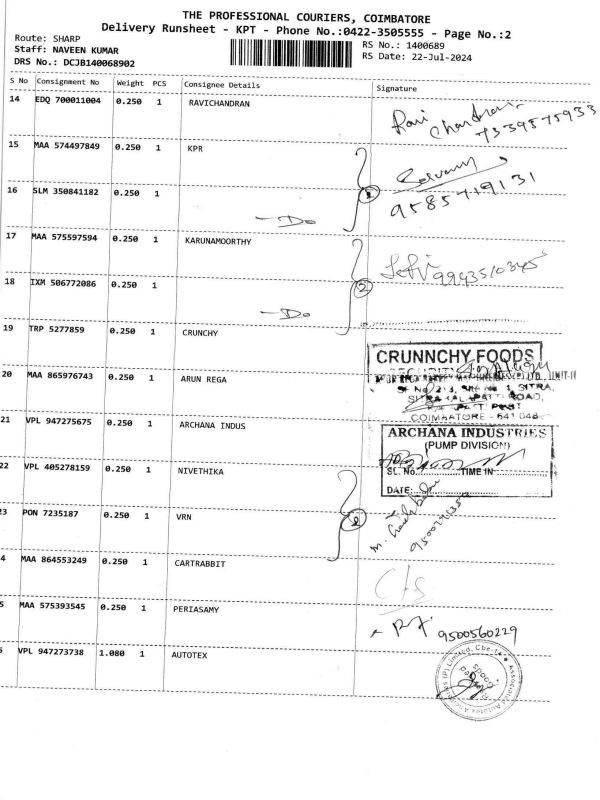 THE PROFESSIONAL COURIERS, COIMBATORE
Delivery Runsheet - KPT - Phone No.:0422-3505555 - Page No.:2
Route: SHARP
RS No.: 1400689
Staff: NAVEEN KUMAR
RS Date: 22-Jul-2024
DRS No.: DCJB140068902
S No Consignment No Weight PCS Consignee Details Signature
14 EDQ 700011004 0.250 1 RAVICHANDRAN
Ravi Chandran
7339575933
15 MAA 574497849 0.250 1 KPR
Selvam
16 SLM 350841182 0.250 1
9585719131
- Do
17 MAA 575597594 0.250 1 KARUNAMOORTHY
9943510345
18 IXM 506772086 0.250 1
2
- Do
19 TRP 5277859 0.250 1 CRUNCHY
CRUNNCHY FOODS
20 MAA 865976743 0.250 1 ARUN REGA
UNIT-II
SITRA,
COIMBATORE - 641 048
21 VPL 947275675 0.250 1 ARCHANA INDUS
ARCHANA INDUSTRIES
(PUMP DIVISION)
22 VPL 405278159 0.250 1 NIVETHIKA
SL. No. TIME IN
DATE:
23 PON 7235187 0.250 1 VRN
4 MAA 864553249 0.250 1 CARTRABBIT
C/S
5 MAA 575393545 0.250 1 PERIASAMY
9500560229
6 VPL 947273738 1.080 1 AUTOTEX